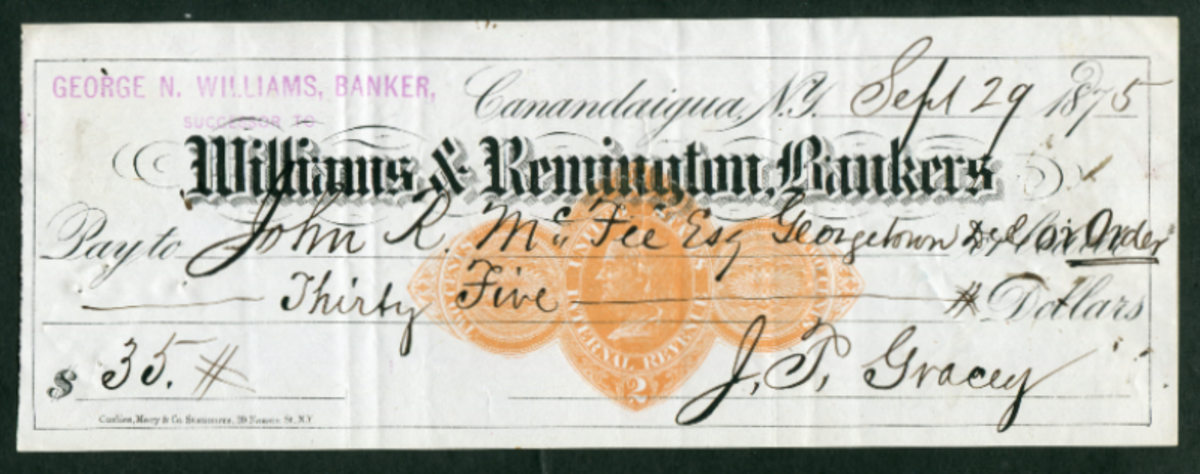 GEORGE N. WILLIAMS, BANKER,
SUCCESSOR TO
Canandaigua, N.Y. Sept 29 1875
Williams & Remington, Bankers
Pay to John R. McFee Esq Georgetown Del or Order
Thirty Five Dollars
UNITED STATES
INTERNAL REVENUE
2
$ 35. J. T. Gracey
Stationers, St. N.Y.